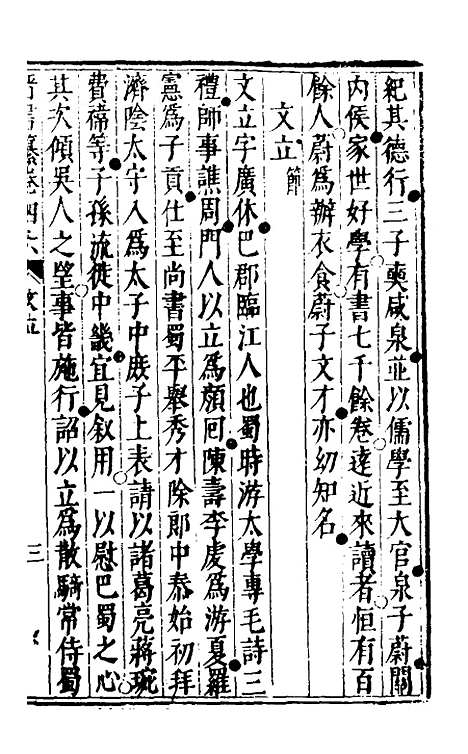 紀其德行三子奭咸泉並以儒學至大官泉子蔚關
内侯家世好學有書七千餘卷逺近來讀者恒有百
餘人蔚爲辦衣食蔚子文才亦幼知名
文立 節
文立字廣休巴郡臨江人也蜀時游太學專毛詩三
禮師事譙周門人以立爲顔回陳壽李虔爲游夏羅
憲爲子貢仕至尚書蜀平舉秀才除郎中泰始初拜
濟陰太守入爲太子中庶子上表請以諸葛亮蔣琬
費禕等子孫流徙中畿宜見叙用一以慰巴蜀之心
其次傾吳人之望事皆施行詔以立爲散騎常侍蜀
卷四六 文立 三